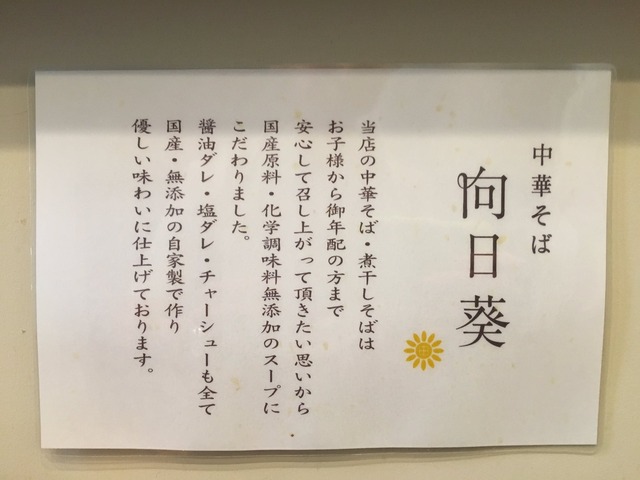 中華そば
向日葵
当店の中華そば・煮干しそばは
お子様から御年配の方まで
安心して召し上がって頂きたい思いから
国産原料・化学調味料無添加のスープに
こだわりました。
醤油ダレ・塩ダレ・チャーシューも全て
国産・無添加の自家製で作り
優しい味わいに仕上げております。